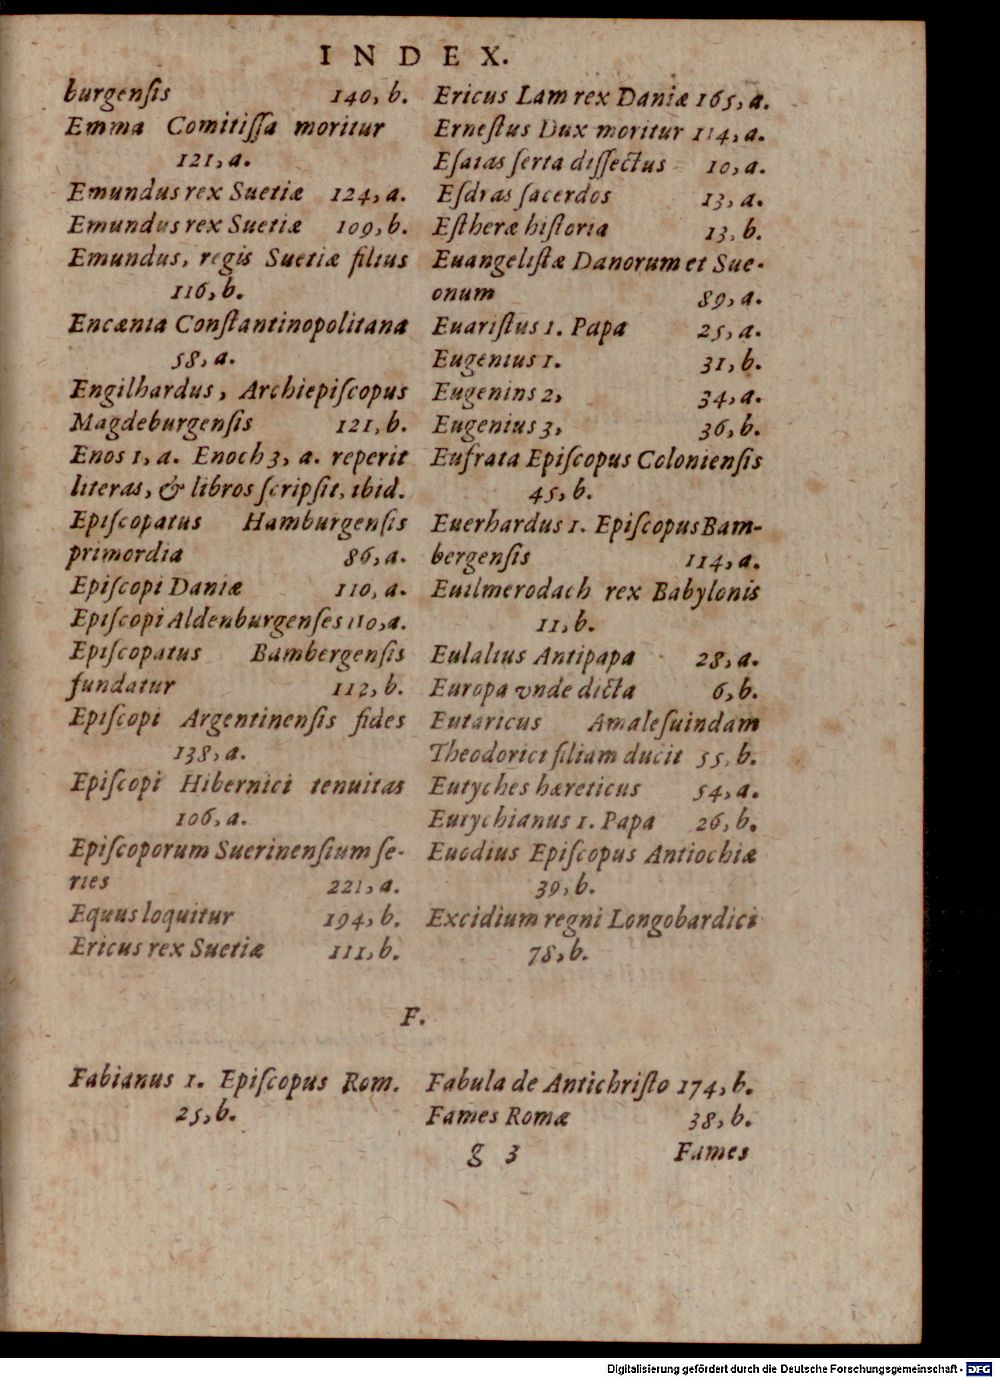 INDEX.
burgenſis 140, b.
Emma Comitiſſa moritur
121, a.
Emundus rex Suetiæ 124, a.
Emundus rex Suetiæ 109, b.
Emundus, regis Suetiæ filius
116, b.
Encænia Conſtantinopolitana
58, a.
Engilhardus, Archiepiſcopus
Magdeburgenſis 121, b.
Enos 1, a. Enoch 3, a. reperit
literas, & libros ſcripſit, ibid.
Epiſcopatus Hamburgenſis
primordia 86, a.
Epiſcopi Daniæ 110, a.
Epiſcopi Aldenburgenſes 110, a.
Epiſcopatus Bambergenſis
fundatur 112, b.
Epiſcopi Argentinenſis fides
138, a.
Epiſcopi Hibernici tenuitas
106, a.
Epiſcoporum Suerinenſium ſe-
ries 221, a.
Equus loquitur 194, b.
Ericus rex Suetiæ 111, b.
Ericus Lam rex Daniæ 165, a.
Erneſtus Dux moritur 114, a.
Eſaias ſerta diſſectus 10, a.
Eſdras ſacerdos 13, a.
Eſtheræ hiſtoria 13, b.
Euangeliſtæ Danorum et Sue-
onum 89, a.
Euariſtus 1. Papa 25, a.
Eugenius 1. 31, b.
Eugenins 2, 34, a.
Eugenius 3, 36, b.
Eufrata Epiſcopus Colonienſis
45, b.
Euerhardus 1. Epiſcopus Bam-
bergenſis 114, a.
Euilmerodach rex Babylonis
11, b.
Eulalius Antipapa 28, a.
Europa vnde dicta 6, b.
Eutaricus Amaleſuindam
Theodorici filiam ducit 55, b.
Eutyches hæreticus 54, a.
Eutychianus 1. Papa 26, b.
Euodius Epiſcopus Antiochiæ
39, b.
Excidium regni Longobardici
78, b.
F.
Fabianus 1. Epiſcopus Rom.
25, b.
Fabula de Antichriſto 174, b.
Fames Romæ 38, b.
g 3 Fames
Digitalisierung gefördert durch die Deutsche Forschungsgemeinschaft - DFG